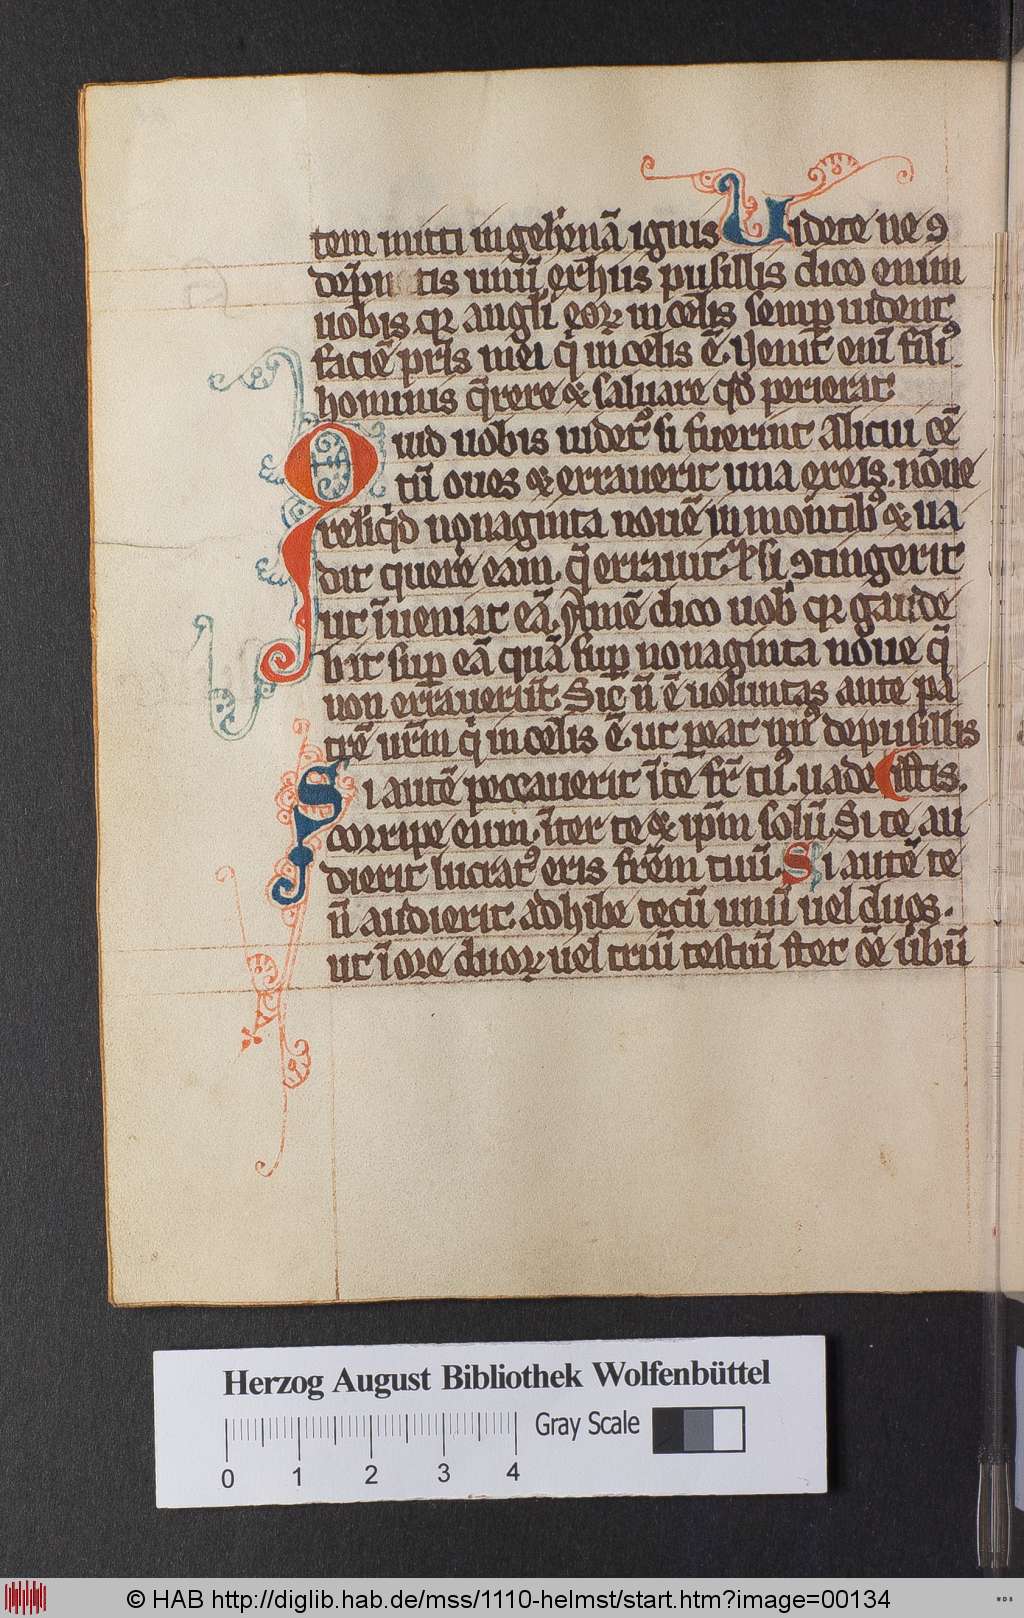 tem mitti in gehennā ignis Videte ne ꝯ
dēpn tis unū exhiis pusillis dico enim
uobis qꝛ angłi eoꝝ in celis semp uident
faciē pr̄is mei q̇ in celis ē. Uenit enī filiꝰ
hominis q̄rere & saluare qd̄ perierat
Quid uobis uidetꝰ si fuerint Alicui cē
tū oues & errauerit una exeis. nōne
relīqͥd nonaginta nouē in montibꝰ & ua
dit querē eam. q̄ errauit. & si ꝯtingerit
ut īueniat eā. Amē dico uob̄ qꝛ gaude
bit sup eā quā sup nonaginta noue q̄
non errauerūt. Sic n̄ ē uoluntas ante pa
trē ur̄m q̇ in celis ē. ut peat unꝰ de pusillis
Si autē peccauerit īte fr̄ tuꝰ. uade istis.
corripe eum. īter te & ip̄m solū. Si te au
dierit lucratꝰ eris fr̄em tuū. Si autē te
n̄ audierit. adhibe tecū unū uel duos.
ut ī ore duoꝝ uel triū testiū stet oē ūbū
Herzog August Bibliothek Wolfenbüttel
Gray Scale
0 1 2 3 4
© HAB http://diglib.hab.de/mss/1110-helmst/start.htm?image=00134